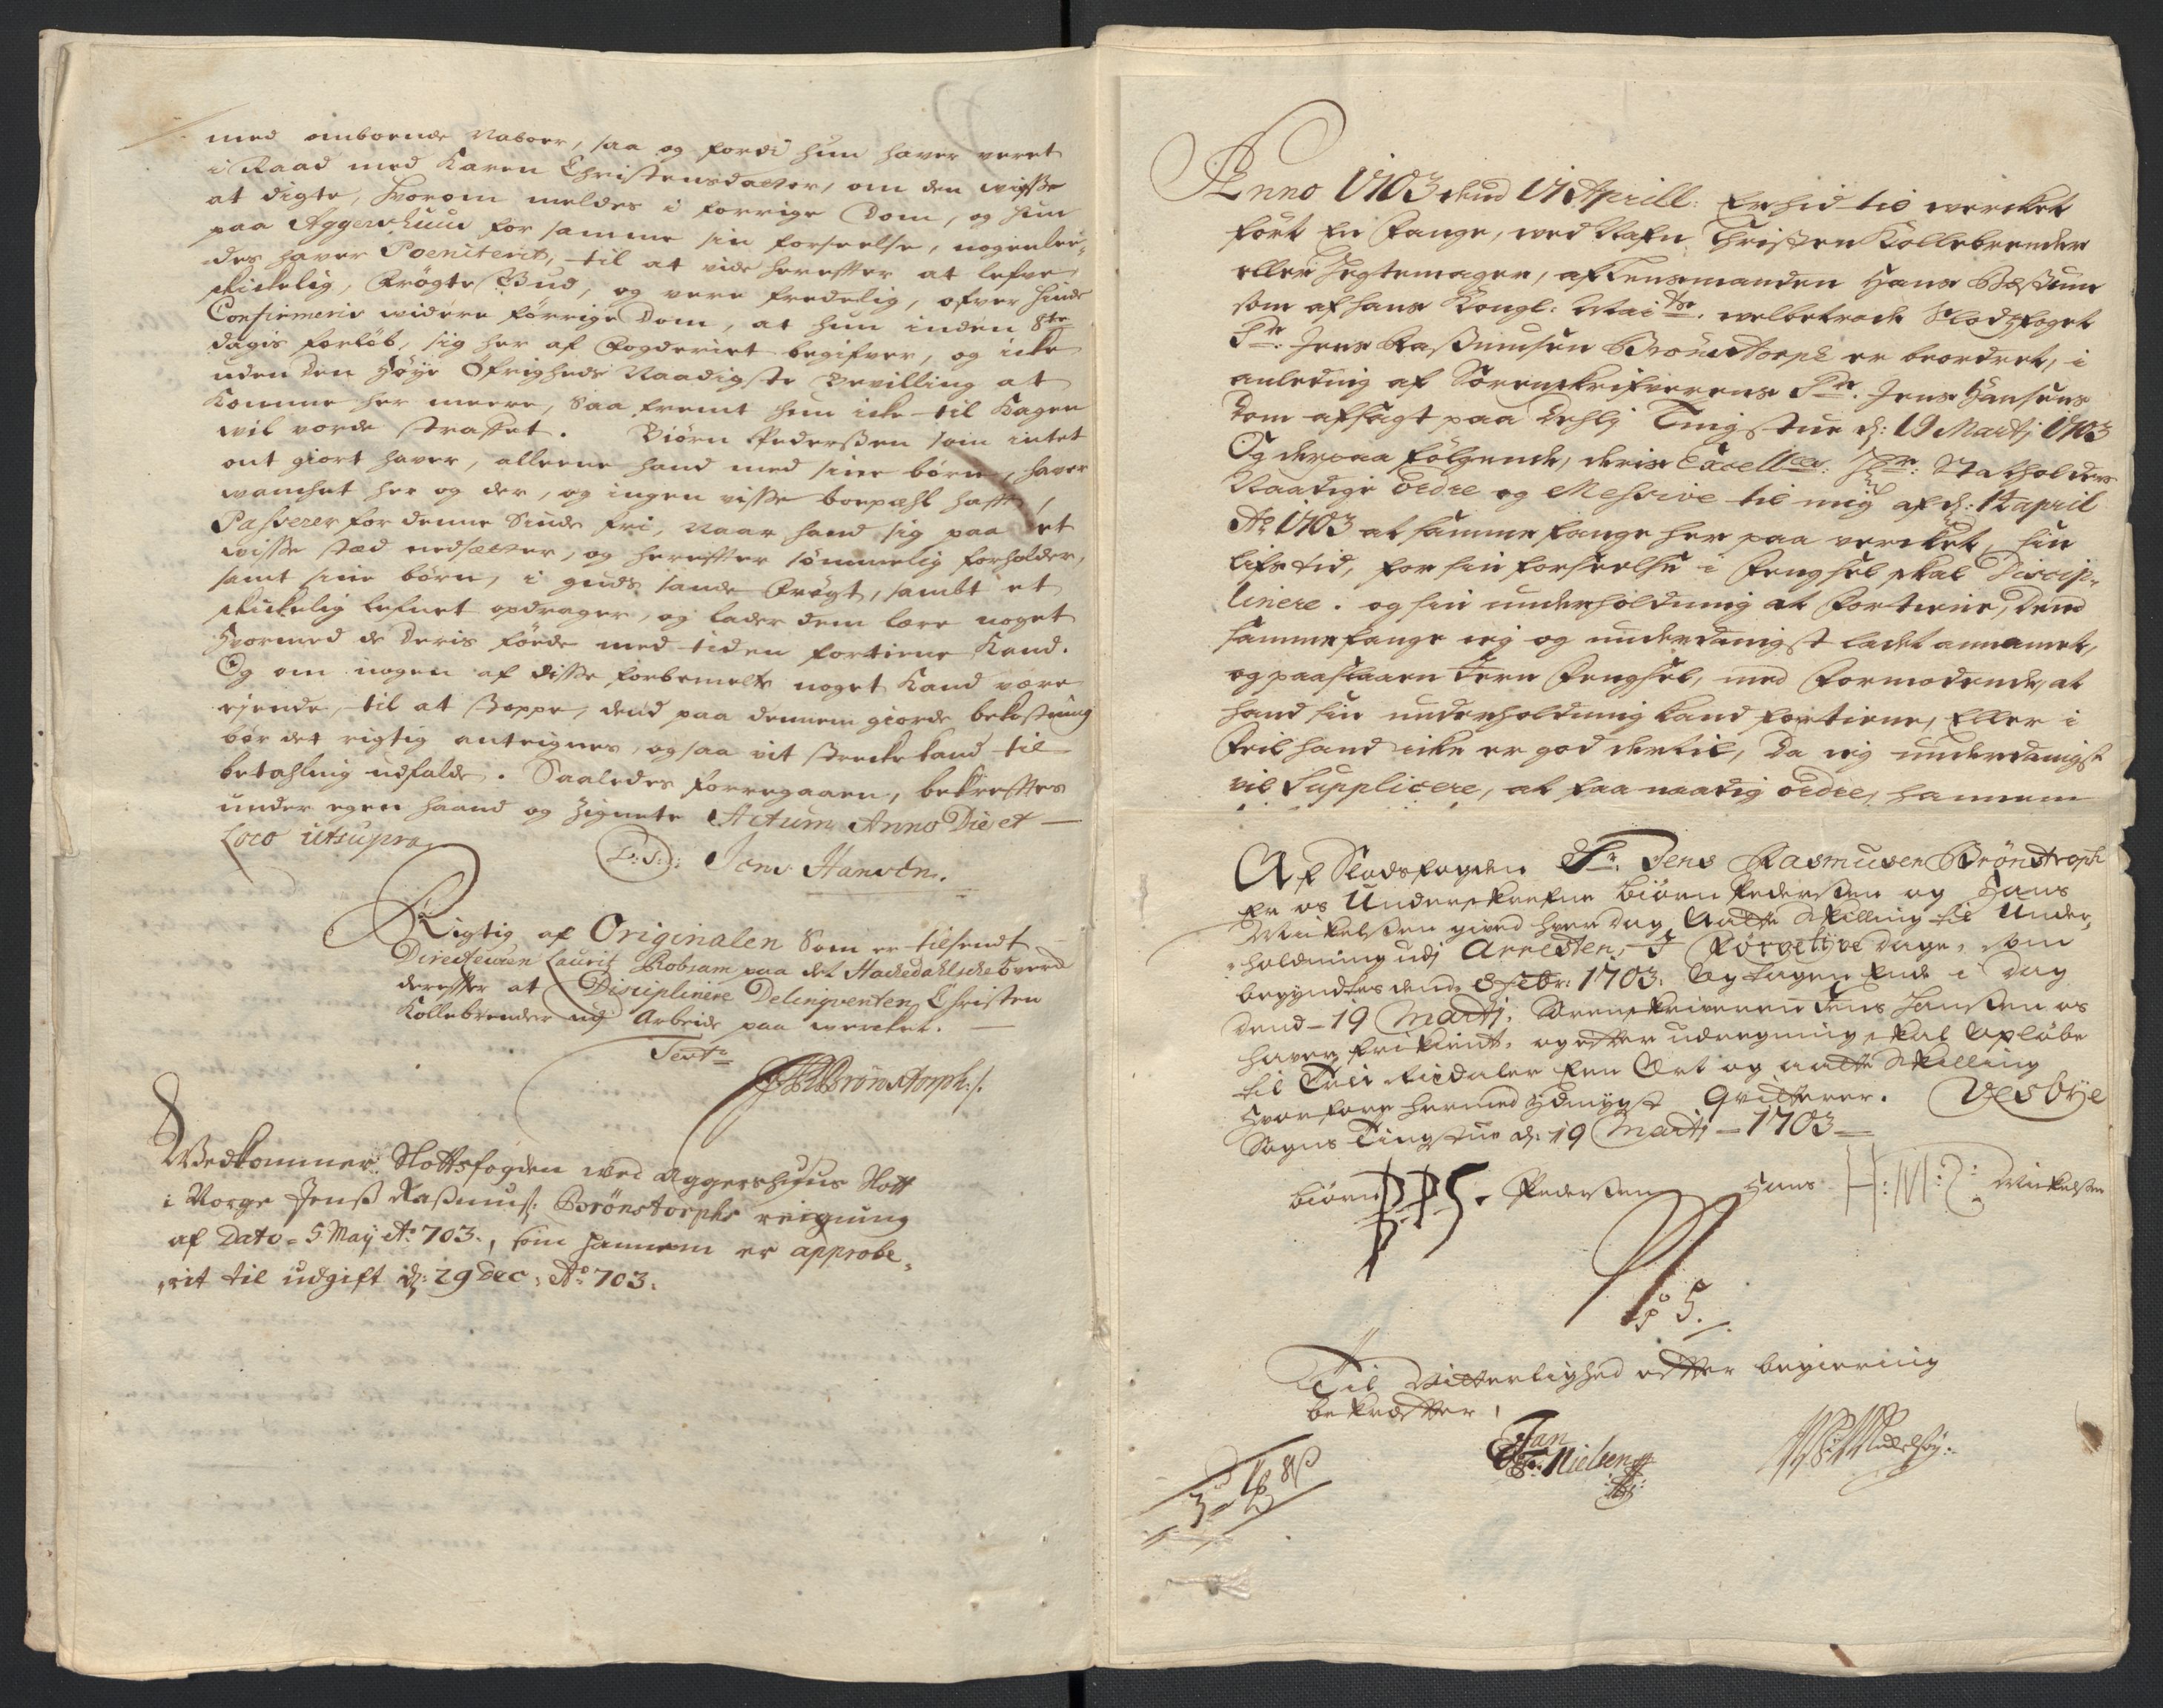 med omboende Naboer, saa og fordi hun haver veret
i Raad med Karen Christensdatter, om den wiisse
at digte, hvorom meldes i forrige Dom, og hun
paa Aggershuus for samme sin forseelse, nogenlee-
des haver Poeniterit, til at vide herefter at lefve
skickelig, frögte Gud, og vere fredelig, ofver hinde
Confirmeris widere förrige Dom, at hun inden 8te
dagis forlöb, sig her af Fogderiet begifver, og icke
uden den höye Öfrigheds Naadigste Bevilling at
komme her meere, Saa fremt hun icke til Kagen
wil vorde straffet. Biörn Pedersen som intet
ont giort haver, alleene hand med sine börn, haver
wancket her og der, og ingen visse boepæhl hafft,
Passerer for denne Sinde fri, naar hand sig paa et
wisse sted nedsætter, og herefter sömmelig forholder,
samt sine börn, i guds sande Frögt, samt et
skickelig lefnet opdrager, og lader dem lære noget
hvormed de deris föede med tiden fortiene kand.
Og om nogen af disse forbemelte noget kand være
ejende, til at stoppe, dend paa dennem giorde bekostning
bör det rigtig anteignes, og saa vit strecke kand til
betahling udfalde. Saaledes forregaaen, bekreftes
under egen haand og Zignete Actum Anno Die et
Loco utsupra
L:S: Jens Hansen.
Rigtig af Originalen Som er tilsendt
Directeuren Laurits Robsam paa det Hackedahlske Verck
derefter at Disciplinere Delinqventen Christen
Kollebrender udj Arbeide paa wercket.
Test:
JRBrönstorph:/.
Wedkommer Slottsfogden wed Aggershuus Slott
i Norge Jens Rasmuss: Brönstorphs reigning
af Dato 5 May Ao 703., som hannem er approbe-
rit til udgift d: 29 Dec: Ao 703.
Anno 1703 dend 17 Aprill: Er hid til wercket
fört En Fange, wed Nafn Christen Kollebrender
eller Hegtemager, af Lensmanden Hans
som af hans Kongl: Maits. welbetroede Slodsfoget
Sr. Jens Rasmussen Brönstorph er beordret, i
anledning af Sorenskrifverens Sr. Jens Hansens
Dom afsagt paa Tingstue d: 19 Martj 1703
Og derpaa fölgende, deris Excellce: Hr: Statholders
Naadige Ordre og Messive til mig af d: 14 april
Ao 1703 at samme fange her paa vercket, sin
lifs tid, for sin forseelse i Fengsel skal Discip-
linere. og sin underholdning at fortiene, Dend
samme fange jeg og underdanigst ladet annamet,
og paaslaaen Jern Fengsel, med Formodende, at
hand sin underholdning kand fortiene, Eller i
Feil hand icke er god dertil, Da jeg underdanigst
vil Supplicere, at faa naadig ordre, hannem
Af Slodsfogden Sr. Jens Rasmusen Brönstroph
Er os Underskrefne Biörn Pedersen og Hans
Mickelsen gived hver dag Aatte Skilling til Under-
holdning udj Arresten, J Förretyve dage, som
begyndtes dend. 8 Febr: 1703. Og tager Ende i Dag
dend 19 Martj, Sorenskriveren Jens Hansen os
haver frikient, og efter udregning skal Oplöbe
til Trei Rixdaler Een Ort og aatte Skilling
hvorfore hermed ydmygst Qvitterer. Vesbye
Sogns Tingstue d: 19 Martj 1703
Biörn BPS. Pedersen Hans H:M:S: Mickelsen
No 5.
Til Vitterlighed efter begiering
bekrefter,
Jan
Nielsen
3 1 8